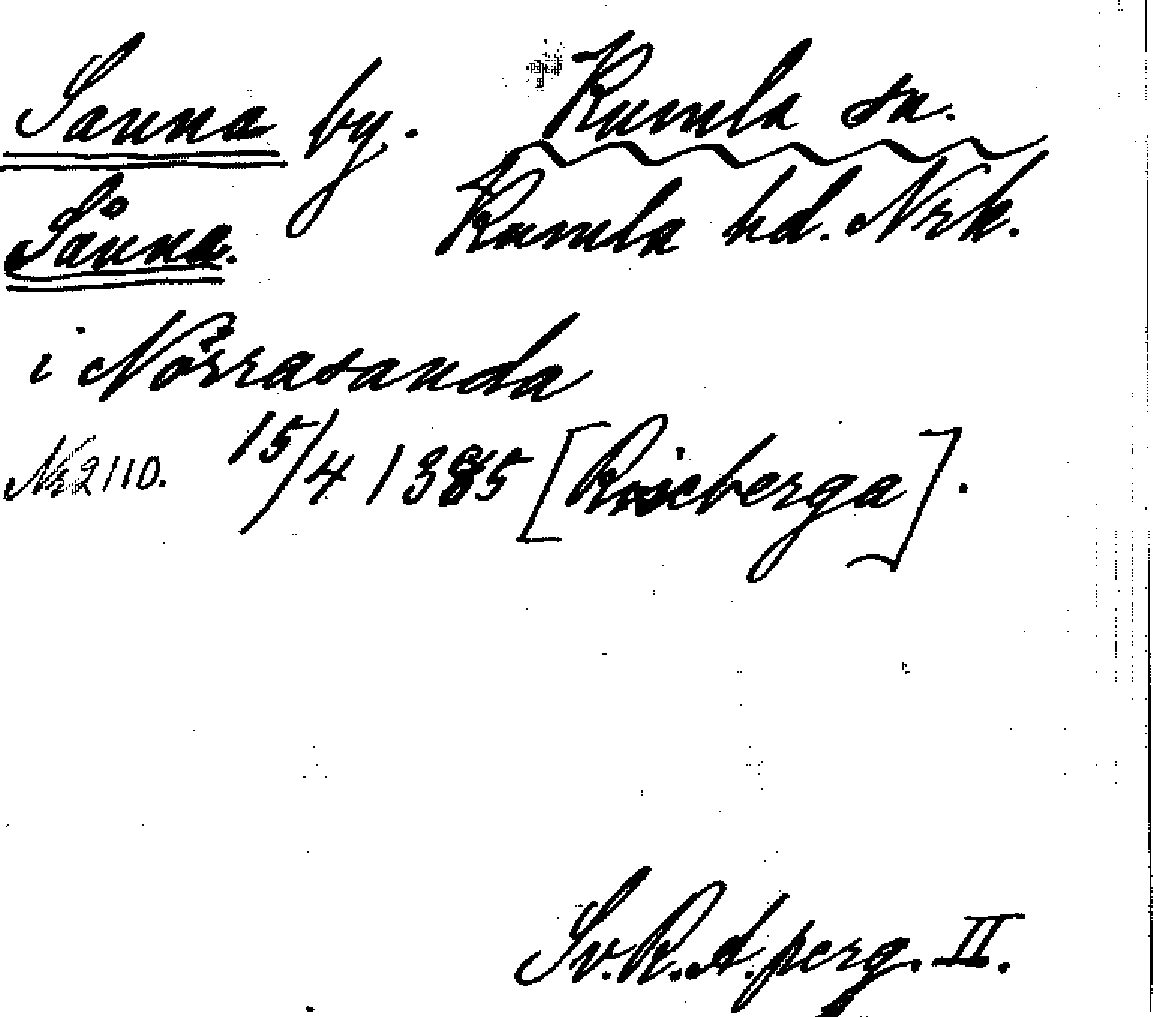 Sanna by. Kumla sn.
Sånna. Kumla hd. Nrk.
i Norrasanda
Nr 2110. 15/4 1385 [Riseberga].
Sv. R. A. perg. II.